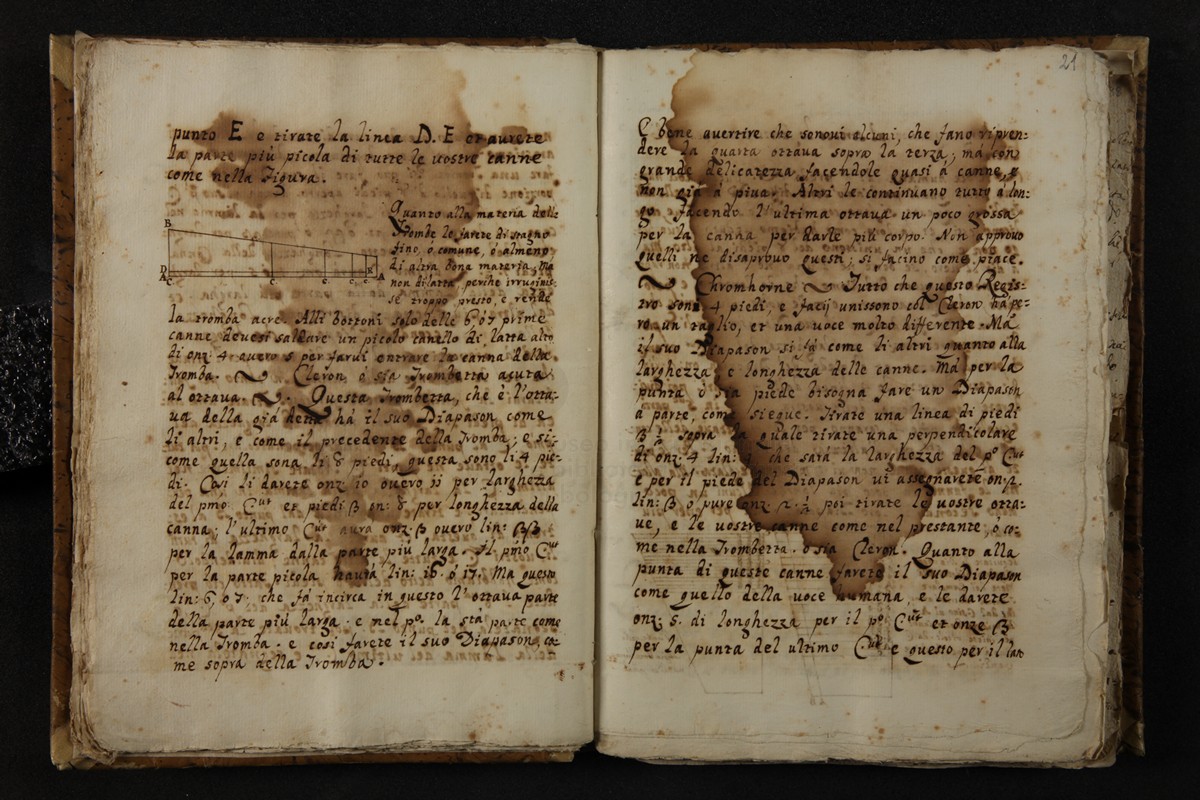 punto E e tirate la linea D. E et aurete
la parte più picola di tutte le vostre canne
come nella Figura.
B
D
A
C
C
C
C
C
E
A
Quanto alla materia delle
Trombe le farete di stagno
fino, ò comune, ò almeno
di altra bona materia, ma
non di latta perche irruginis-
se troppo presto, e rende
la tromba acre. Alli bottoni solo delle 6, ò 7 prime
canne devesi saldare un picolo canello di latta alto
di onz: 4 overo 5 per farui entrare la canna della
Tromba. Cleron, ò sia Trombetta acuta
al ottava. Questa Trombetta, che è l'otta-
va della già detta hà il suo Diapason come
li altri, e come il precedente della Tromba; e si-
come quella sona li 8 piedi, questa sono li 4 pie-
di. Così li darete onz: 10 overo 11 per larghezza
del pmo: Cut et piedi 3 on: 8 per longhezza della
canna; l'ultimo Cut aura onz: 3 overo lin: 33
per la lamma dalla parte più larga. Il pmo Cut
per la parte picola haurà lin: 16 ò 17. Ma questo
lin: 6, ò 7; che fà incirca in questo l'ottava parte
della parte più larga. e nel po. la sta parte come
nella Tromba. e così farete il suo Diapason, co-
me sopra della Tromba.
21
E bene avertire che sonovi alcuni, che fano ripren-
dere la quarta ottava sopra la terza; ma con
grande delicatezza facendole quasi à canne, e
non già à piva. Altri le continuano tutto à lon-
go facendo l'ultima ottava un poco grossa
per la canna per darle più corpo. Non approvo
quelli ne disaprovo questi; si facino come piace.
Chromhorne Tutto che questo Regis-
tro sona 4 piedi, e facij unissono col Cleron hà pe-
rò un taglio, et una voce molto differente. Mà
il suo Diapason si fà come li altri quanto alla
larghezza e longhezza delle canne. Mà per la
punta ò sia piede bisogna fare un Diapason
à parte, come siegue. Tirate una linea di piedi
3 sopra la quale tirate una perpendicolare
di onz: 4 lin: che sarà la larghezza del po Cut
e per il piede del Diapason vi assegnarete on: 2.
lin: 3 ò pure onz: 2 ½ poi tirate le vostre otta-
ve, e le vostre canne come nel prestante, ò co-
me nella Trombetta. ò sia Cleron. Quanto alla
punta di queste canne farete il suo Diapason
come quello della voce humana. e le darete
onz: 5. di longhezza per il po Cut et onze 3
per la punta del ultimo Cut e questo per il lato